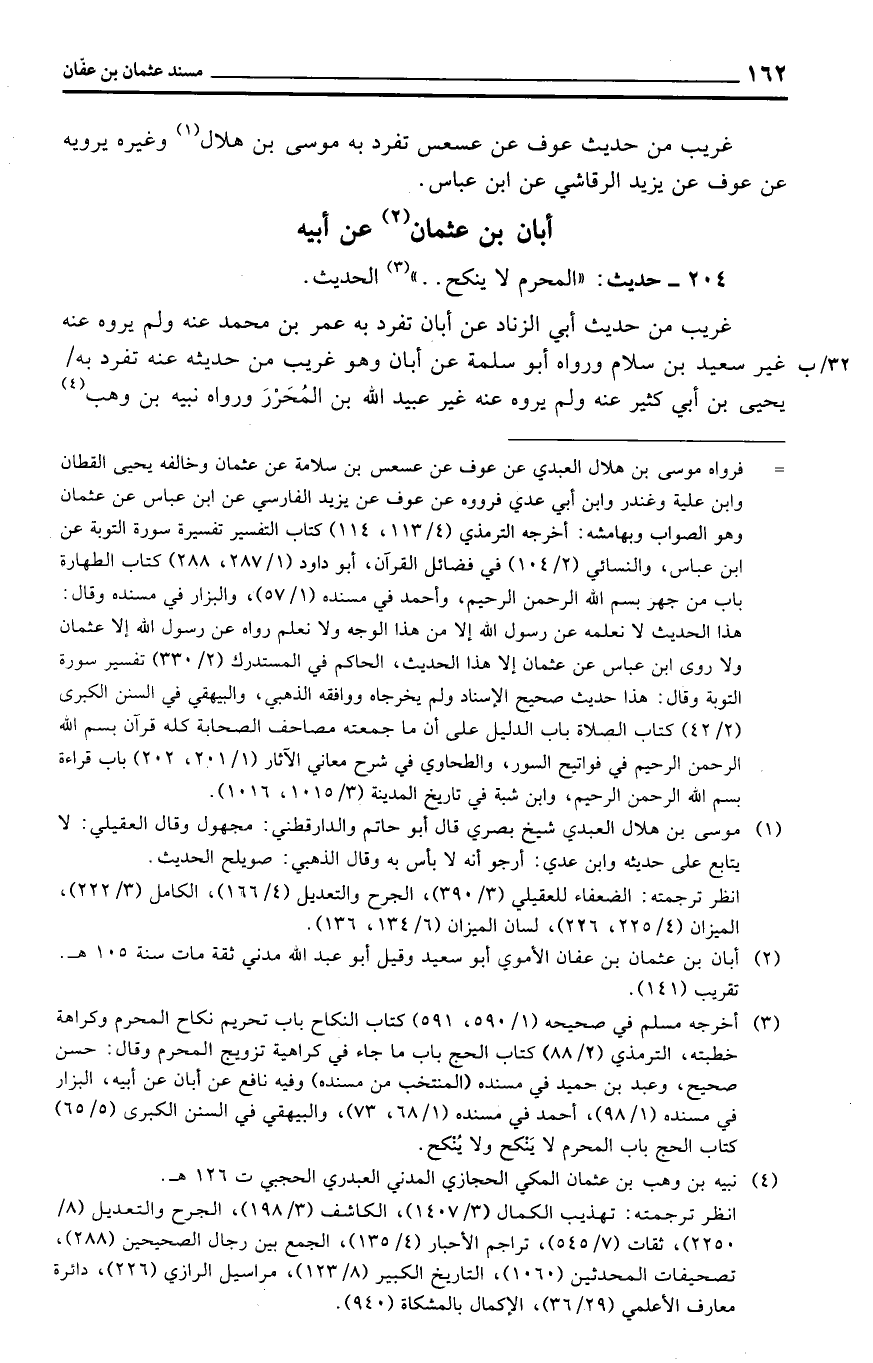 ١٦٢ مسند عثمان بن عفّان
غريب من حديث عوف عن عسعس تفرد به موسى بن هلال(١) وغيره يرويه
عن عوف عن يزيد الرقاشي عن ابن عباس.
أبان بن عثمان(٢) عن أبيه
٢٠٤ ـ حديث: «المحرم لا ينكح..»(٣) الحديث.
غريب من حديث أبي الزناد عن أبان تفرد به عمر بن محمد عنه ولم يروه عنه
٣٢/ب غير سعيد بن سلام ورواه أبو سلمة عن أبان وهو غريب من حديثه عنه تفرد به/
يحيى بن أبي كثير عنه ولم يروه عنه غير عبيد الله بن المُحَرْرَ ورواه نبيه بن وهب(٤)
= فرواه موسى بن هلال العبدي عن عوف عن عسعس بن سلامة عن عثمان وخالفه يحيى القطان
وابن علية وغندر وابن أبي عدي فرووه عن عوف عن يزيد الفارسي عن ابن عباس عن عثمان
وهو الصواب وبهامشه: أخرجه الترمذي (٤/ ١١٣، ١١٤) كتاب التفسير تفسيرة سورة التوبة عن
ابن عباس، والنسائي (٢/ ١٠٤) في فضائل القرآن، أبو داود (١/ ٢٨٧، ٢٨٨) كتاب الطهارة
باب من جهر بسم الله الرحمن الرحيم، وأحمد في مسنده (١/ ٥٧)، والبزار في مسنده وقال:
هذا الحديث لا نعلمه عن رسول الله إلا من هذا الوجه ولا نعلم رواه عن رسول الله إلا عثمان
ولا روى ابن عباس عن عثمان إلا هذا الحديث، الحاكم في المستدرك (٢/ ٣٣٠) تفسير سورة
التوبة وقال: هذا حديث صحيح الإسناد ولم يخرجاه ووافقه الذهبي، والبيهقي في السنن الكبرى
(٢/ ٤٢) كتاب الصلاة باب الدليل على أن ما جمعته مصاحف الصحابة كله قرآن بسم الله
الرحمن الرحيم في فواتيح السور، والطحاوي في شرح معاني الآثار (١/ ٢٠١، ٢٠٢) باب قراءة
بسم الله الرحمن الرحيم، وابن شبة في تاريخ المدينة (٣/ ١٠١٥، ١٠١٦).
(١) موسى بن هلال العبدي شيخ بصري قال أبو حاتم والدارقطني: مجهول وقال العقيلي: لا
يتابع على حديثه وابن عدي: أرجو أنه لا بأس به وقال الذهبي: صويلح الحديث.
انظر ترجمته: الضعفاء للعقيلي (٣/ ٣٩٠)، الجرح والتعديل (٤/ ١٦٦)، الكامل (٣/ ٢٢٢)،
الميزان (٤/ ٢٢٥، ٢٢٦)، لسان الميزان (٦/ ١٣٤، ١٣٦).
(٢) أبان بن عثمان بن عفان الأموي أبو سعيد وقيل أبو عبد الله مدني ثقة مات سنة ١٠٥ هـ.
تقريب (١٤١).
(٣) أخرجه مسلم في صحيحه (١/ ٥٩٠، ٥٩١) كتاب النكاح باب تحريم نكاح المحرم وكراهة
خطبته، الترمذي (٢/ ٨٨) كتاب الحج باب ما جاء في كراهية تزويج المحرم وقال: حسن
صحيح، وعبد بن حميد في مسنده (المنتخب من مسنده) وفيه نافع عن أبان عن أبيه، البزار
في مسنده (١/ ٩٨)، أحمد في مسنده (١/ ٦٨، ٧٣)، والبيهقي في السنن الكبرى (٥/ ٦٥)
كتاب الحج باب المحرم لا يَنْكح ولا يُنْكح.
(٤) نبيه بن وهب بن عثمان المكي الحجازي المدني العبدري الحجبي ت ١٢٦ هـ.
انظر ترجمته: تهذيب الكمال (٣/ ١٤٠٧)، الكاشف (٣/ ١٩٨)، الجرح والتعديل (٨/
٢٢٥٠)، ثقات (٧/ ٥٤٥)، تراجم الأحبار (٤/ ١٣٥)، الجمع بين رجال الصحيحين (٢٨٨)،
تصحيفات المحدثين (١٠٦٠)، التاريخ الكبير (٨/ ١٢٣)، مراسيل الرازي (٢٢٦)، دائرة
معارف الأعلمي (٢٩/ ٣٦)، الإكمال بالمشكاة (٩٤٠).